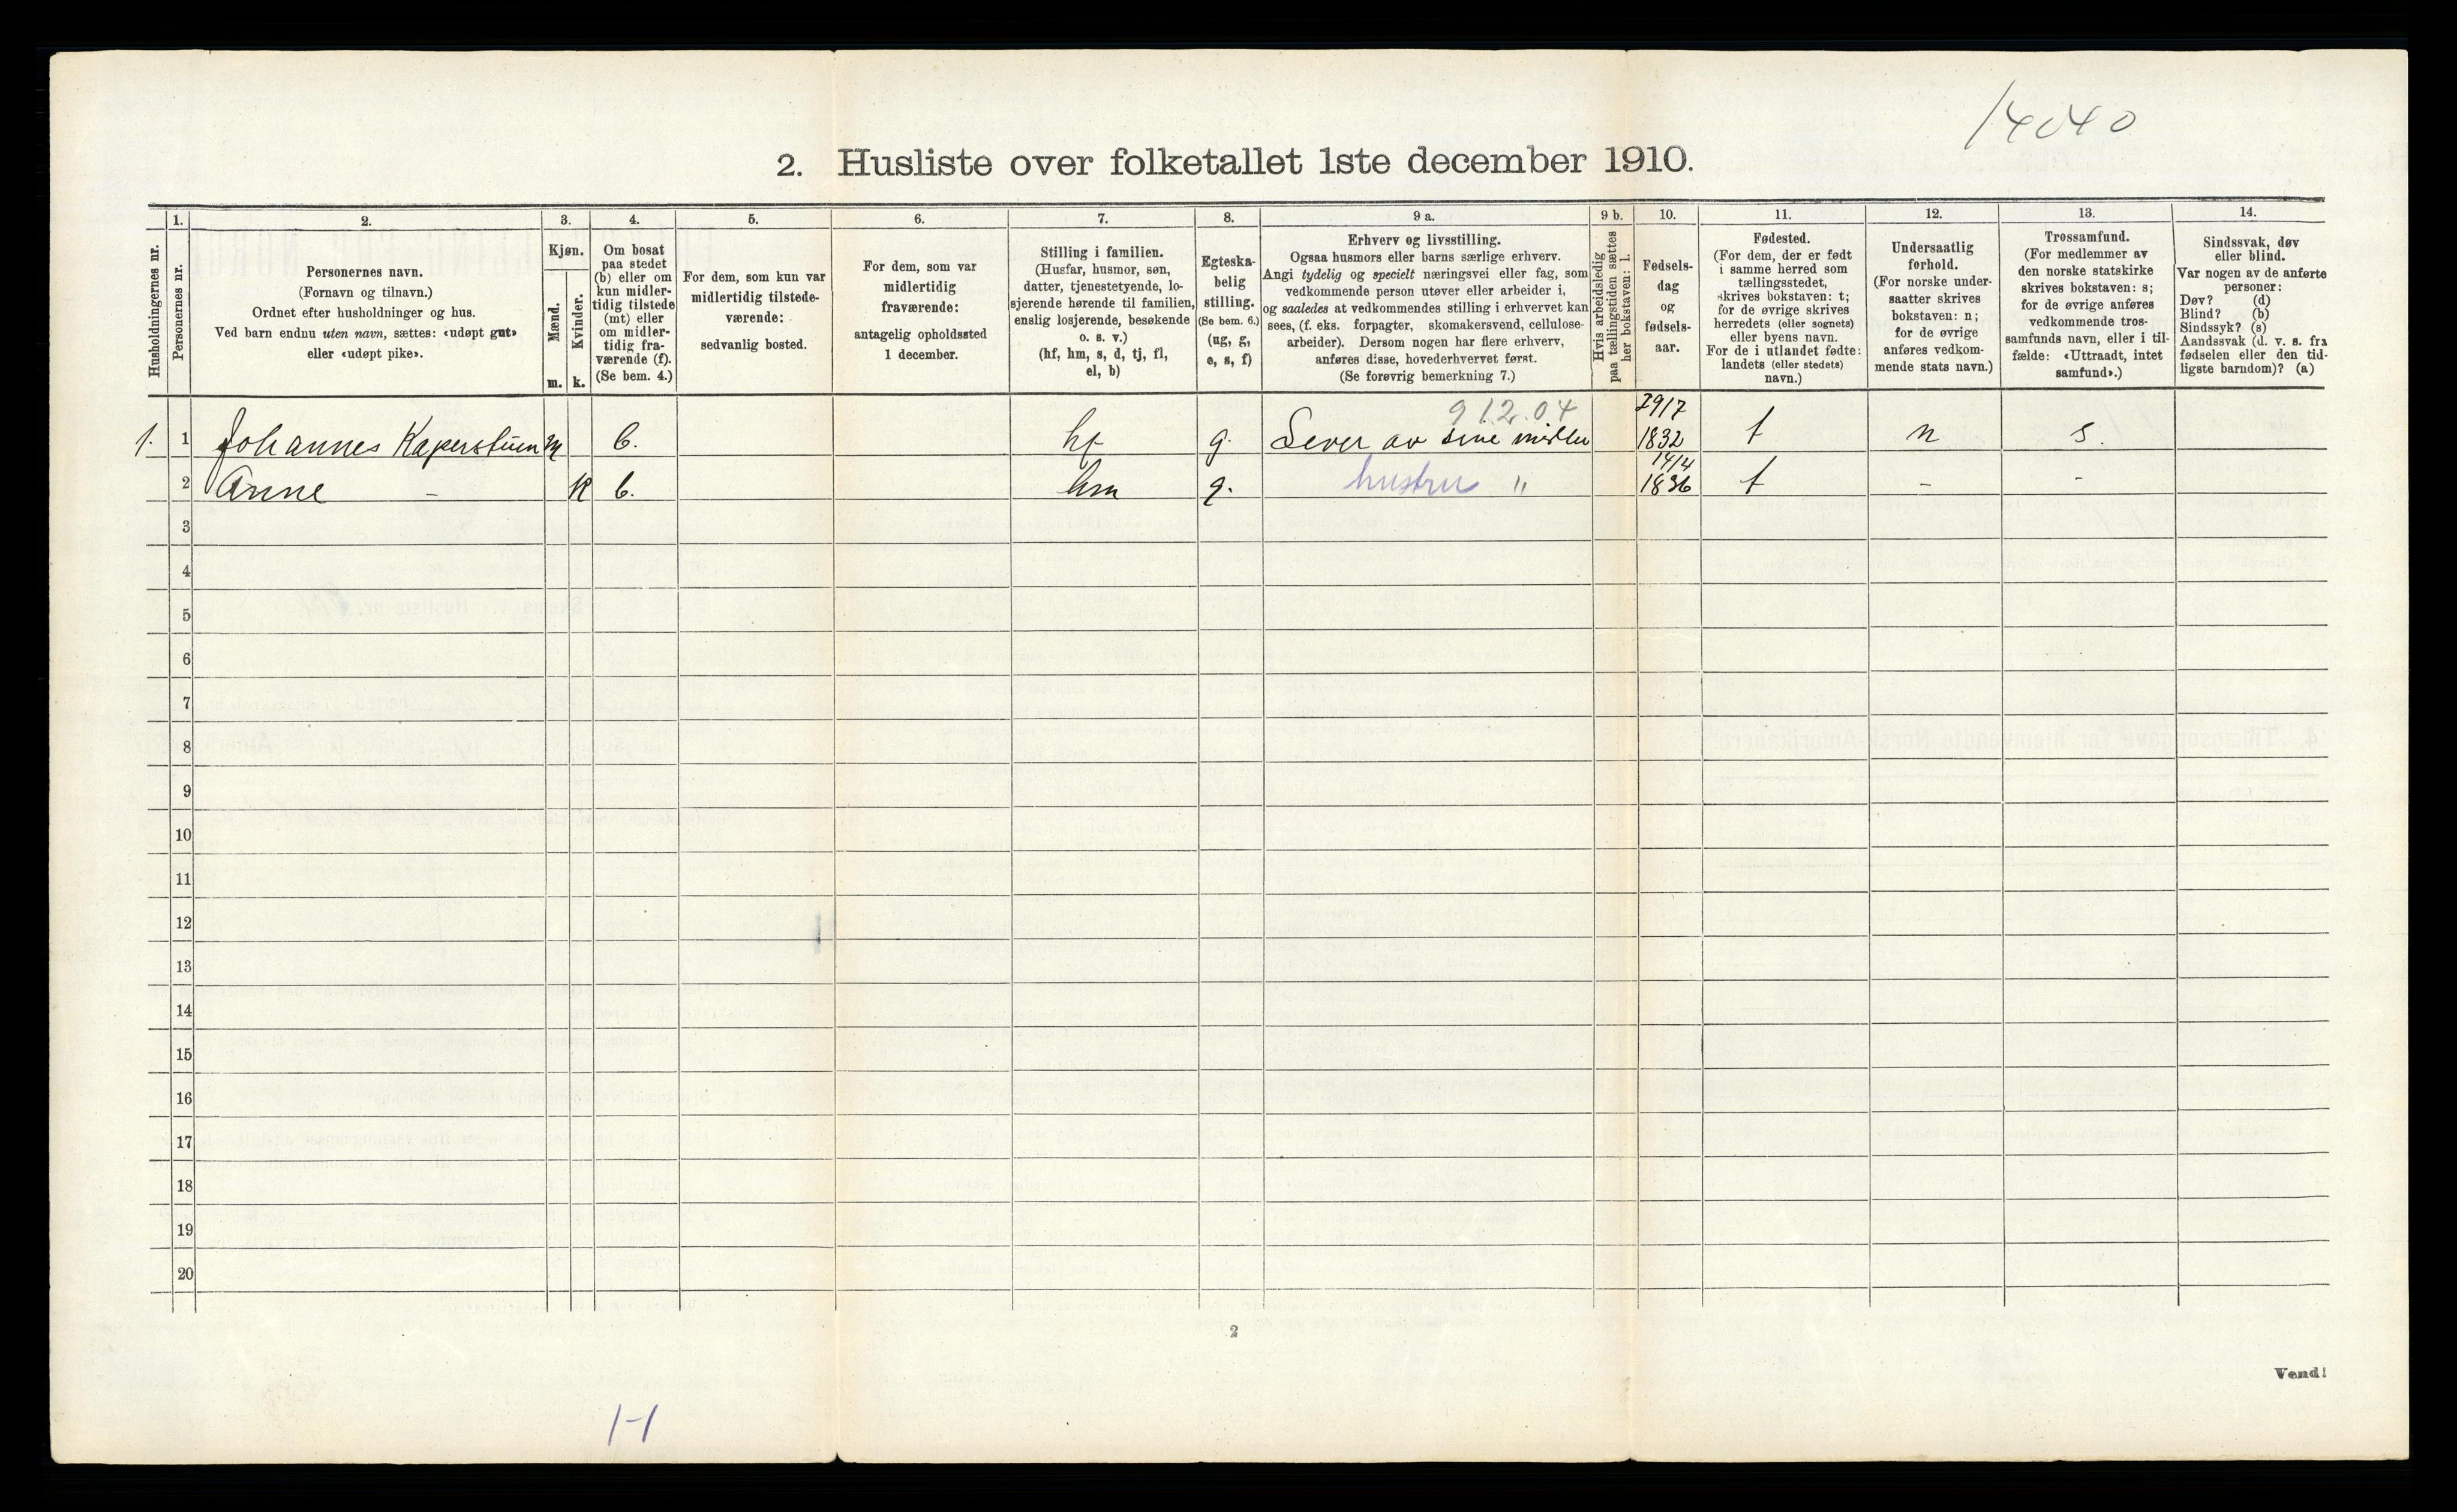 14040
2. Husliste over folketallet 1ste december 1910.
Husholdningernes nr.
1.
Personernes nr.
2.
Personernes navn.
(Fornavn og tilnavn.)
Ordnet efter husholdninger og hus.
Ved barn endnu uten navn, sættes: «udøpt gut»
eller «udøpt pike».
3.
Kjøn.
Mænd.
Kvinder.
m. k.
4.
Om bosat
paa stedet
(b) eller om
kun midler-
tidig tilstede
(mt) eller
om midler-
tidig fra-
værende (f).
(Se bem. 4.)
5.
For dem, som kun var
midlertidig tilstede-
værende:
sedvanlig bosted.
6.
For dem, som var
midlertidig
fraværende:
antagelig opholdssted
1 december.
7.
Stilling i familien.
(Husfar, husmor, søn,
datter, tjenestetyende, lo-
sjerende hørende til familien,
enslig losjerende, besøkende
o. s. v.)
(hf, hm, s, d, tj, fl,
el, b)
8.
Egteska-
belig
stilling.
(Se bem. 6.)
(ug, g,
e, s, f)
9 a.
Erhverv og livsstilling.
Ogsaa husmors eller barns særlige erhverv.
Angi tydelig og specielt næringsvei eller fag, som
vedkommende person utøver eller arbeider i,
og saaledes at vedkommendes stilling i erhvervet kan
sees, (f. eks. forpagter, skomakersvend, cellulose-
arbeider). Dersom nogen har flere erhverv,
anføres disse, hovederhvervet først.
(Se forøvrig bemerkning 7.)
9 b.
Hvis arbeidsledig
paa tællingstiden sættes
her bokstaven: l.
10.
Fødsels-
dag
og
fødsels-
aar.
11.
Fødested.
(For dem, der er født
i samme herred som
tællingsstedet,
skrives bokstaven: t;
for de øvrige skrives
herredets (eller sognets)
eller byens navn.
For de i utlandet fødte:
landets (eller stedets)
navn.)
12.
Undersaatlig
forhold.
(For norske under-
saatter skrives
bokstaven: n;
for de øvrige
anføres vedkom-
mende stats navn.)
13.
Trossamfund.
(For medlemmer av
den norske statskirke
skrives bokstaven: s;
for de øvrige anføres
vedkommende tros-
samfunds navn, eller i til-
fælde: «Uttraadt, intet
samfund».)
14.
Sindssvak, døv
eller blind.
Var nogen av de anførte
personer:
Døv? (d)
Blind? (b)
Sindssyk? (s)
Aandssvak (d. v. s. fra
fødselen eller den tid-
ligste barndom)? (a)
912.04 29/7
1. 1 Johannes Kaperstuen m b. hf g. Lever av sine midler 1832 t n s.
14/4
2 Anne - k b. hm g. hustru " 1836 t - -
3
4
5
6
7
8
9
10
11
12
13
14
15
16
17
18
19
20
2
Vend!
1-1